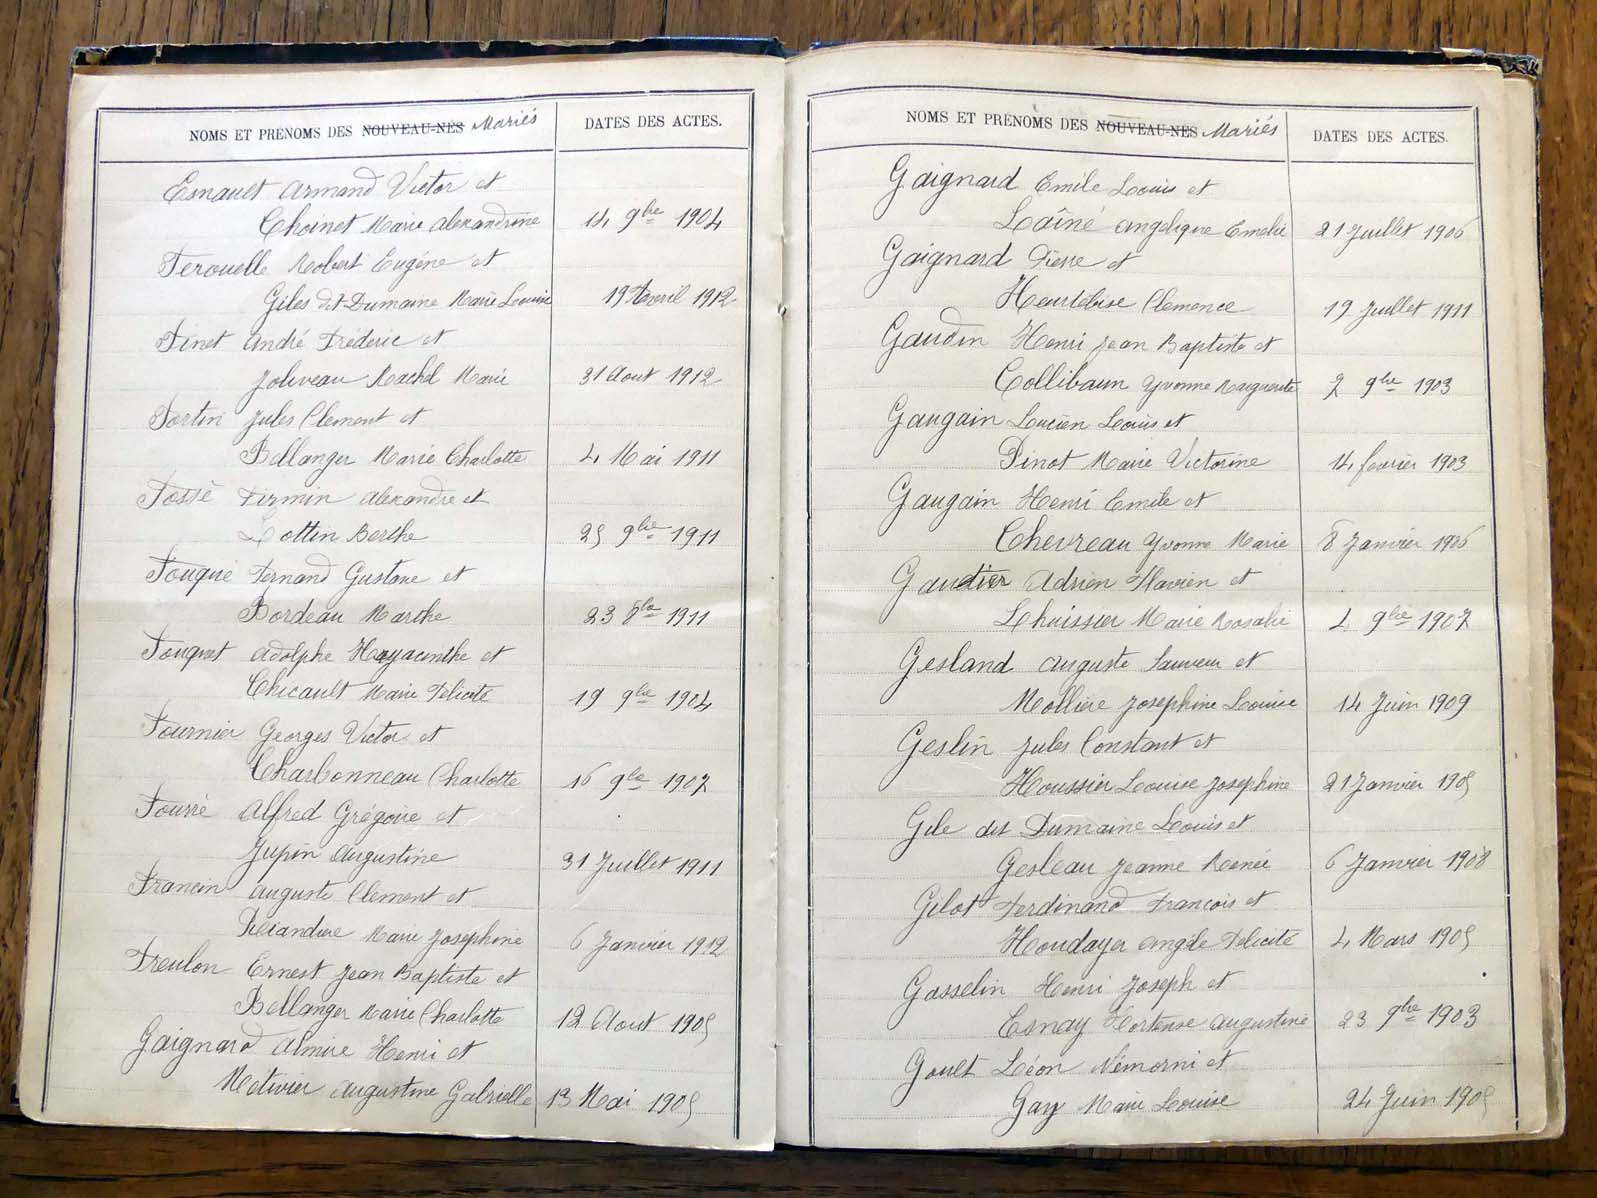 NOMS ET PRÉNOMS DES NOUVEAU-NÉS Mariés DATES DES ACTES.
Esnault Armand Victor et
Choinet Marie Alexandrine 14 9bre 1904
Ferouelle Robert Eugène et
Giles dit Dumaine Marie Louise 19 Avril 1912
Finet André Fréderic et
Joliveau Rachel Marie 31 Aout 1912
Fortin Jules Clement et
Bellanger Marie Charlotte 4 Mai 1911
Fossé Firmin Alexandre et
Lottin Berthe 25 9bre 1911
Fouqué Fernand Gustave et
Bordeau Marthe 23 8bre 1911
Fouquet Adolphe Hyacinthe et
Chicault Marie Félicité 19 9bre 1904
Fournier Georges Victor et
Charbonneau Charlotte 16 9bre 1907
Fourré Alfred Grégoire et
Jupin Augustine 31 Juillet 1911
Francin Auguste Clement et
Marie Josephine 6 Janvier 1912
Freulon Ernest Jean Baptiste et
Bellanger Marie Charlotte 12 Aout 1905
Gaignard Almire Henri et
Métivier Augustine Gabrielle 13 Mai 1905
NOMS ET PRÉNOMS DES NOUVEAU-NÉS Mariés DATES DES ACTES.
Gaignard Emile Louis et
Laîné Angélique Emelie 21 Juillet 1906
Gaignard Pierre et
Heurtebise Clemence 19 Juillet 1911
Gaudin Henri Jean Baptiste et
Collibaun Yvonne Marguerite 7 9bre 1903
Gaugain Lucien Louis et
Pinot Marie Victorine 14 fevrier 1903
Gaugain Henri Emile et
Chevreau Yvonne Marie 8 Janvier 1906
Gautier Adrien Flavien et
Lhuissier Marie Rosalie 4 9bre 1907
Gesland Auguste Sauveur et
Mollière Josephine Louise 14 Juin 1909
Geslin Jules Constant et
Houssier Louise Josephine 21 Janvier 1905
Gile dit Dumaine Louis et
Gesleau Jeanne Renée 6 Janvier 1908
Gilot Ferdinand François et
Houdayer Angèle Félicité 4 Mars 1905
Gosselin Henri Joseph et
Esnay Hortense Augustine 23 9bre 1903
Goult Léon Némorni et
Gay Marie Louise 24 Juin 1905